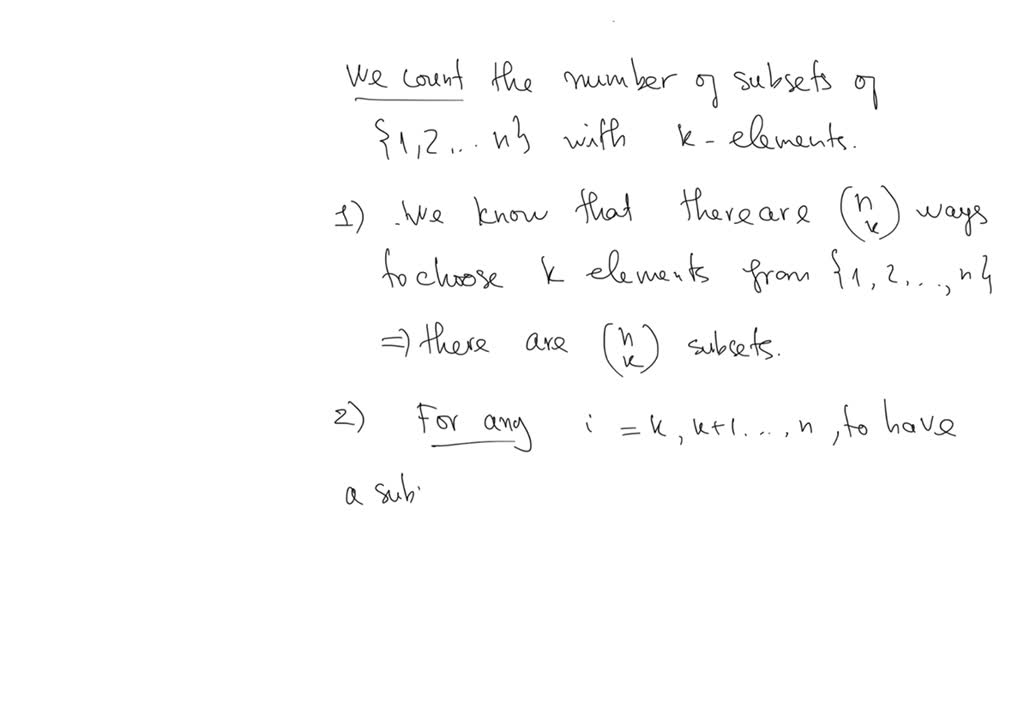 We count the number of subsets of
{1,2... n} with k-elements.
1) We know that there are (n k) ways
to choose k elements from {1, 2, ..., n}
=> there are (n k) subsets.
2) For any i = k, k+1..., n, to have
a sub